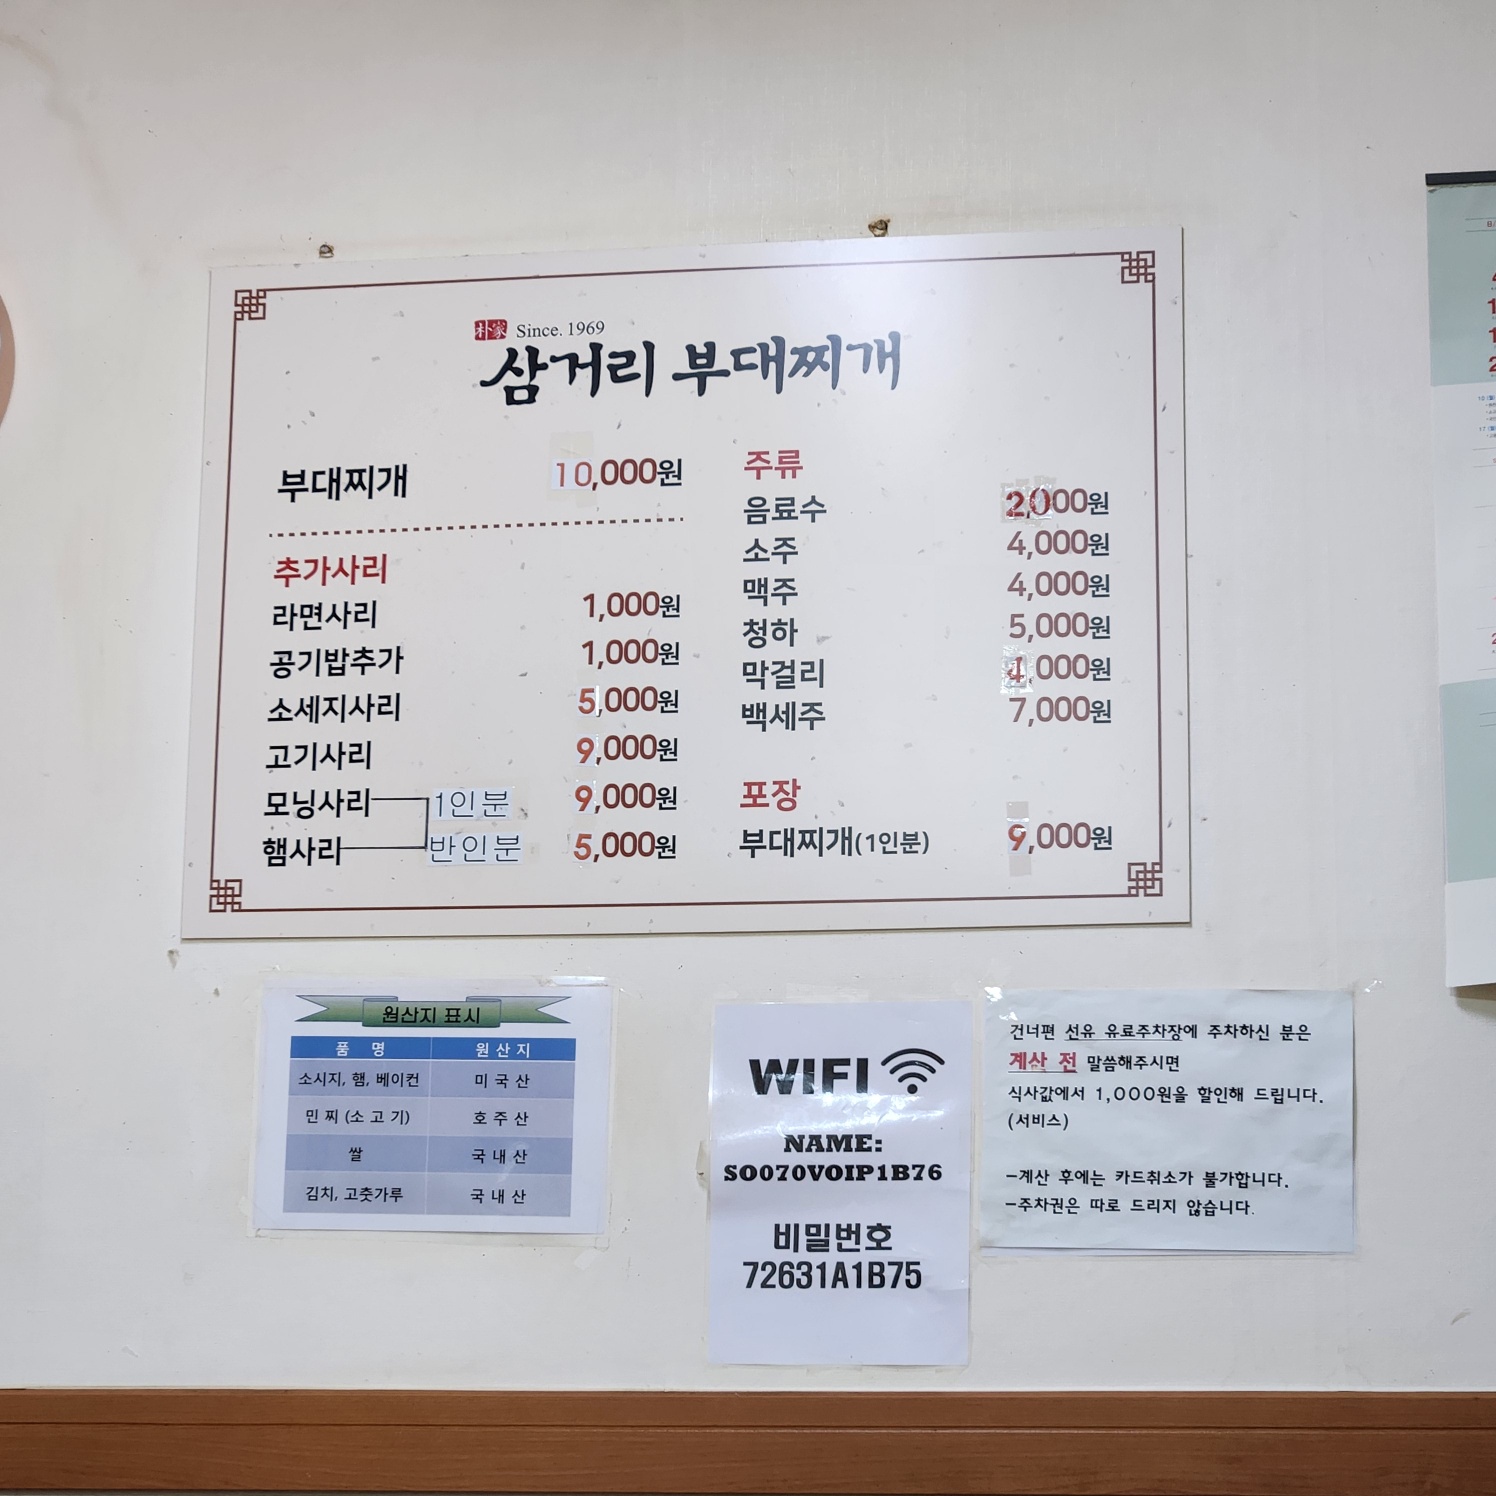 朴家 Since. 1969
삼거리 부대찌개
부대찌개 10,000원
추가사리
라면사리 1,000원
공기밥추가 1,000원
소세지사리 5,000원
고기사리 9,000원
모닝사리 1인분 9,000원
햄사리 반인분 5,000원
주류
음료수 2,000원
소주 4,000원
맥주 4,000원
청하 5,000원
막걸리 4,000원
백세주 7,000원
포장
부대찌개(1인분) 9,000원
원산지 표시
품 명 원 산 지
소시지, 햄, 베이컨 미 국 산
민 찌 (소 고 기) 호 주 산
쌀 국 내 산
김치, 고춧가루 국 내 산
WIFI
NAME:
SO070VOIP1B76
비밀번호
72631A1B75
건너편 선유 유료주차장에 주차하신 분은
계산 전 말씀해주시면
식사값에서 1,000원을 할인해 드립니다.
(서비스)
-계산 후에는 카드취소가 불가합니다.
-주차권은 따로 드리지 않습니다.